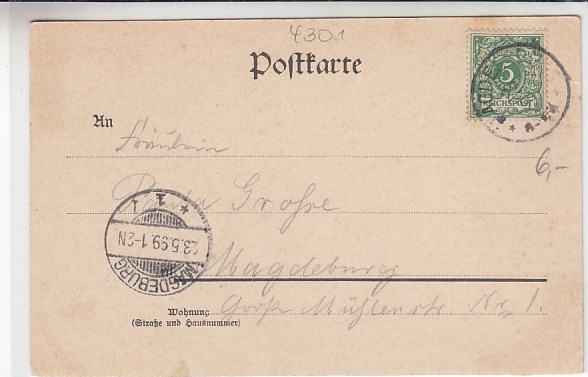 4301
Postkarte
5
REICHSPOST
An
Fräulein
6,-
Große
* 1 1
23.5.99.1-2N
MAGDEBURG
Magdeburg
Große Mühlenstr. Nr. 1.
Wohnung
(Straße und Hausnummer)